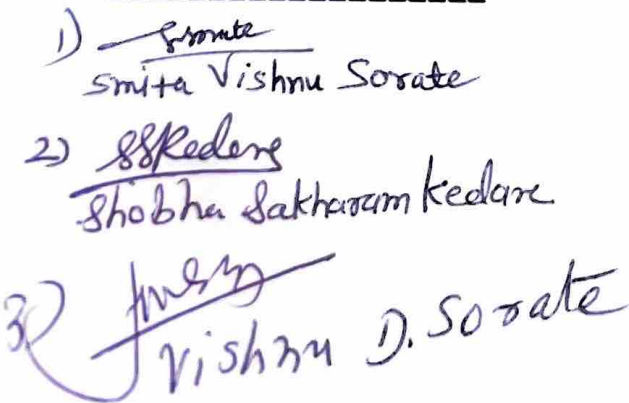 1) Sorate
Smita Vishnu Sorate
2) SSKedare
Shobha Sakharam Kedare
3)
Vishnu D. Sorate